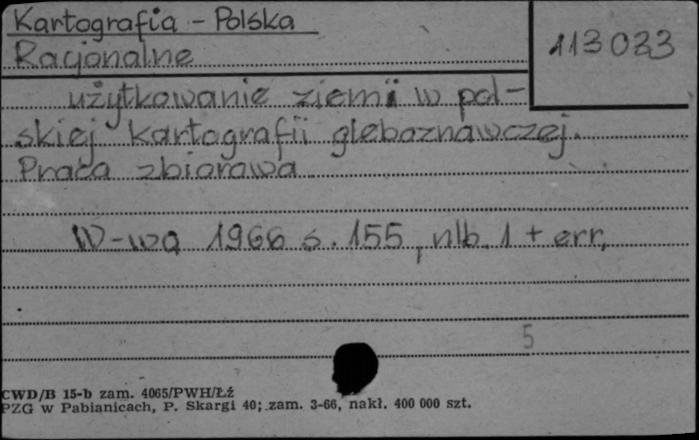 Kartografia - Polska
113033
Racjonalne
użytkowanie ziemi w pol-
skiej kartografii gleboznawczej.
Praca zbiorowa
W-wa 1966 s. 155, nlb. 1 + err.
5
CWD/B 15-b zam. 4065/PWH/Łź
PZG w Pabianicach, P. Skargi 40; zam. 3-66, nakł. 400 000 szt.